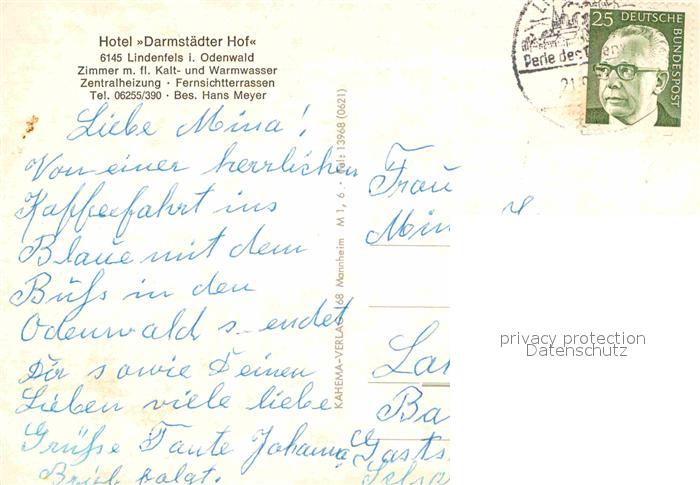 Hotel »Darmstädter Hof«
6145 Lindenfels i. Odenwald
Zimmer m. fl. Kalt- und Warmwasser
Zentralheizung · Fernsichtterrassen
Tel. 06255/390 · Bes. Hans Meyer
Liebe Mina!
Von einer herrlichen
Kaffeefahrt ins
Blaue mit dem
Bußs in den
Odenwald s endet
Dir sowie Deinen
Lieben viele liebe
Grüße Tante Johanna
Brief folgt.
KAHEMA-VERLAG 68 Mannheim M 1, 6 · Tel: 13968 (0621)
25 DEUTSCHE BUNDESPOST
Perle des
Frau
Min
La
Ba
Gasts
privacy protection
Datenschutz